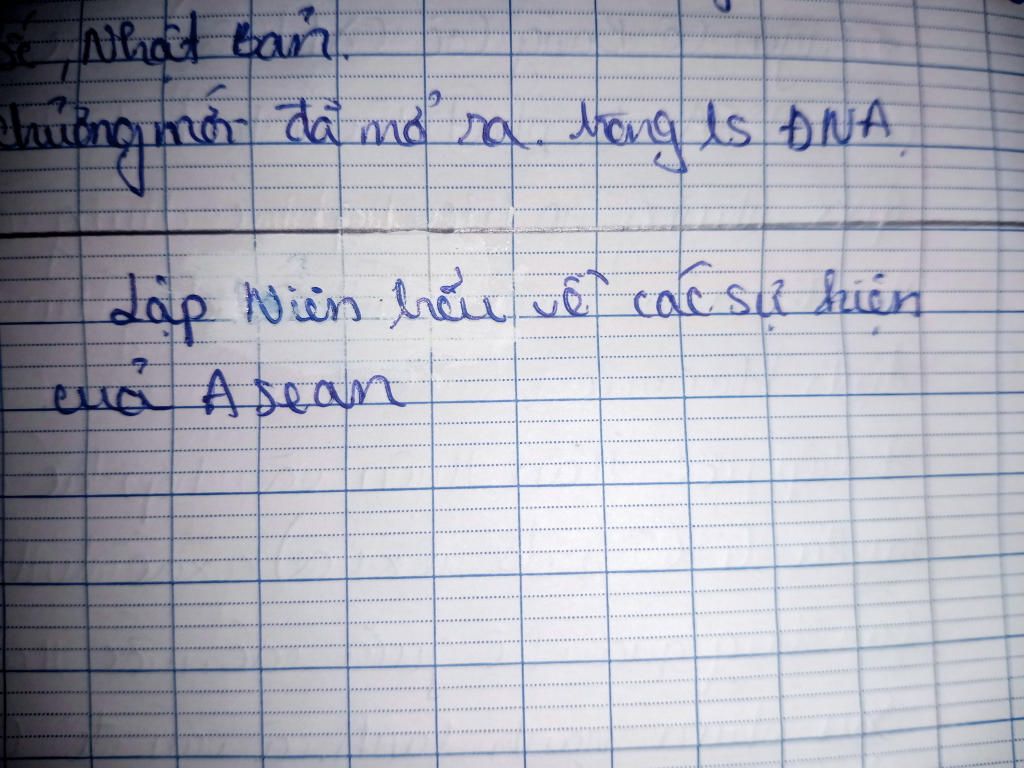 Nhật bản.
chương mới đã mở ra. trong ls ĐNA
Lập Niên biểu về các sự kiện
của Asean